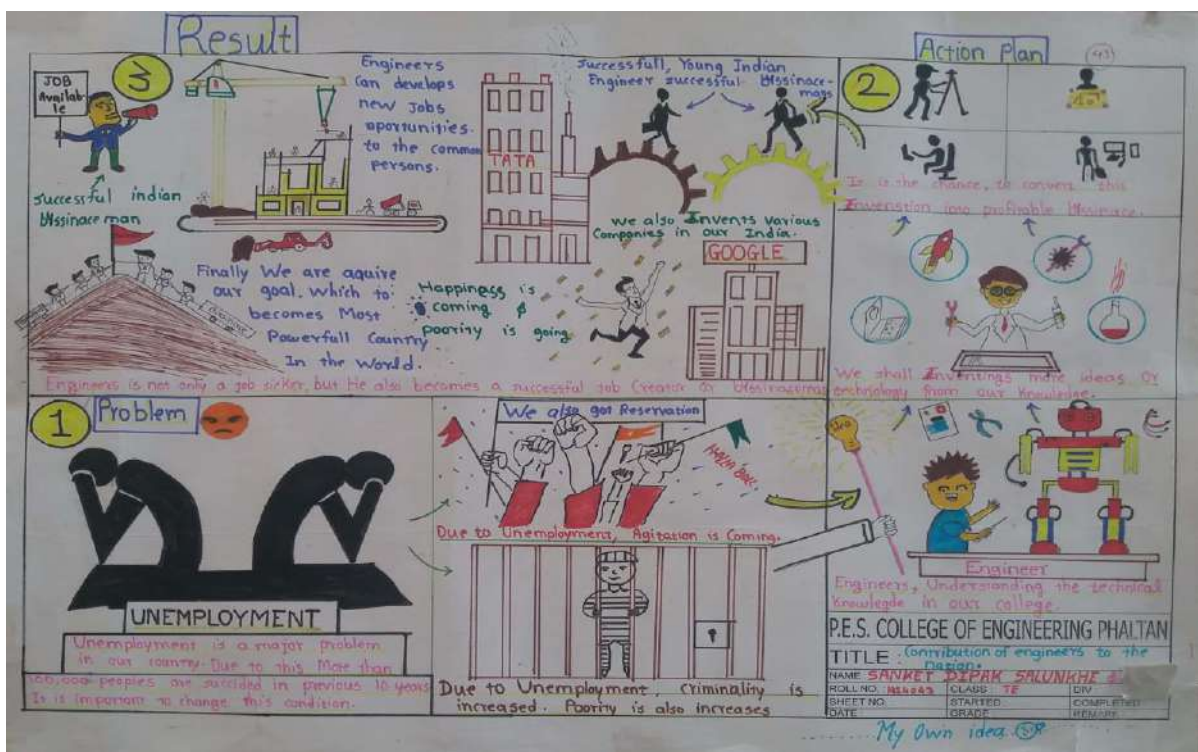 Result
3
JOB
Availab-
le
Successful indian
bissinaceman
Engineers
can develops
new Jobs
oportunities.
to the common
persons.
TATA
Successfull, Young Indian
Engineer successful bissinace-
mans
we also Invents various
Companies in our India.
GOOGLE
Finally We are aquire
our goal. Which to
becomes Most
Powerfull Country
In the World.
Happiness is
coming &
poority is going
Engineers is not only a job sicker, but He also becomes a successful Job Creator or bissinacemas
Action Plan
43
2
It is the chance, to convert this
Invenstion into profitable bissinace.
We shall Inventings more ideas Or
technology from our Knowledge.
1
Problem
UNEMPLOYMENT
Unemployment is a major problem
in our country. Due to this More than
100,000 peoples are succided in previous 10 years
It is important to change this condition.
We also got Reservation
Due to Unemployment, Agitation is Coming.
Due to Unemployment, criminality is
increased. Poority is also increases
Engineer
Engineers, Understanding the technical
Knowlegde in our college.
P.E.S. COLLEGE OF ENGINEERING PHALTAN
TITLE : Contribution of engineers to the
nation.
NAME SANKET DIPAK SALUNKHE
ROLL NO. CLASS TE DIV
SHEET NO. STARTED COMPLETED
DATE GRADE REMARK
My Own idea.